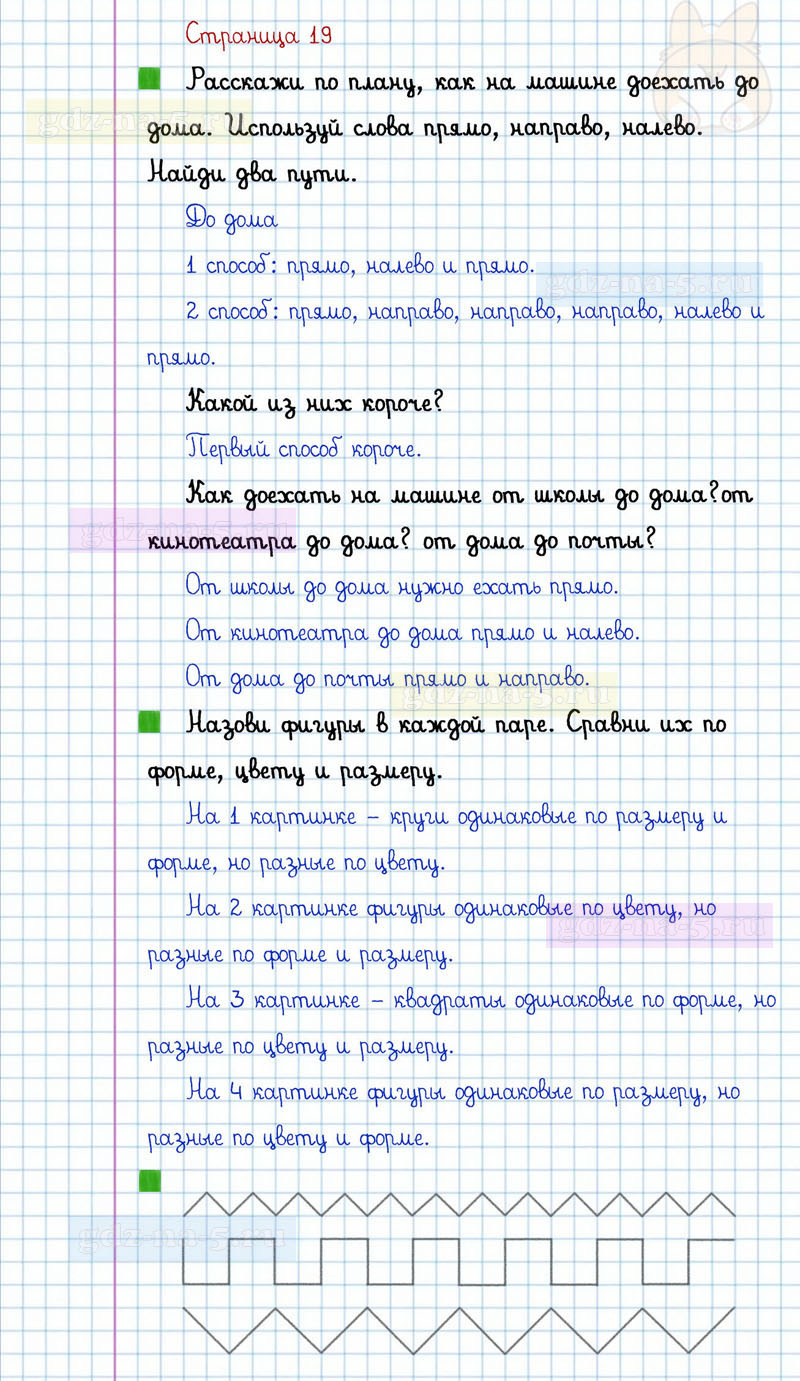 Страница 19
Расскажи по плану, как на машине доехать до
gdz-na-5.ru
дома. Используй слова прямо, направо, налево.
Найди два пути.
До дома
1 способ: прямо, налево и прямо.
gdz-na-5.ru
2 способ: прямо, направо, направо, направо, налево и
прямо.
Какой из них короче?
Первый способ короче.
Как доехать на машине от школы до дома?от
gdz-na-5.ru
кинотеатра до дома? от дома до почты?
От школы до дома нужно ехать прямо.
От кинотеатра до дома прямо и налево.
От дома до почты прямо и направо.
gdz-na-5.ru
Назови фигуры в каждой паре. Сравни их по
форме, цвету и размеру.
На 1 картинке – круги одинаковые по размеру и
форме, но разные по цвету.
На 2 картинке фигуры одинаковые по цвету, но
gdz-na-5.ru
разные по форме и размеру.
На 3 картинке – квадраты одинаковые по форме, но
разные по цвету и размеру.
На 4 картинке фигуры одинаковые по размеру, но
разные по цвету и форме.
gdz-na-5.ru